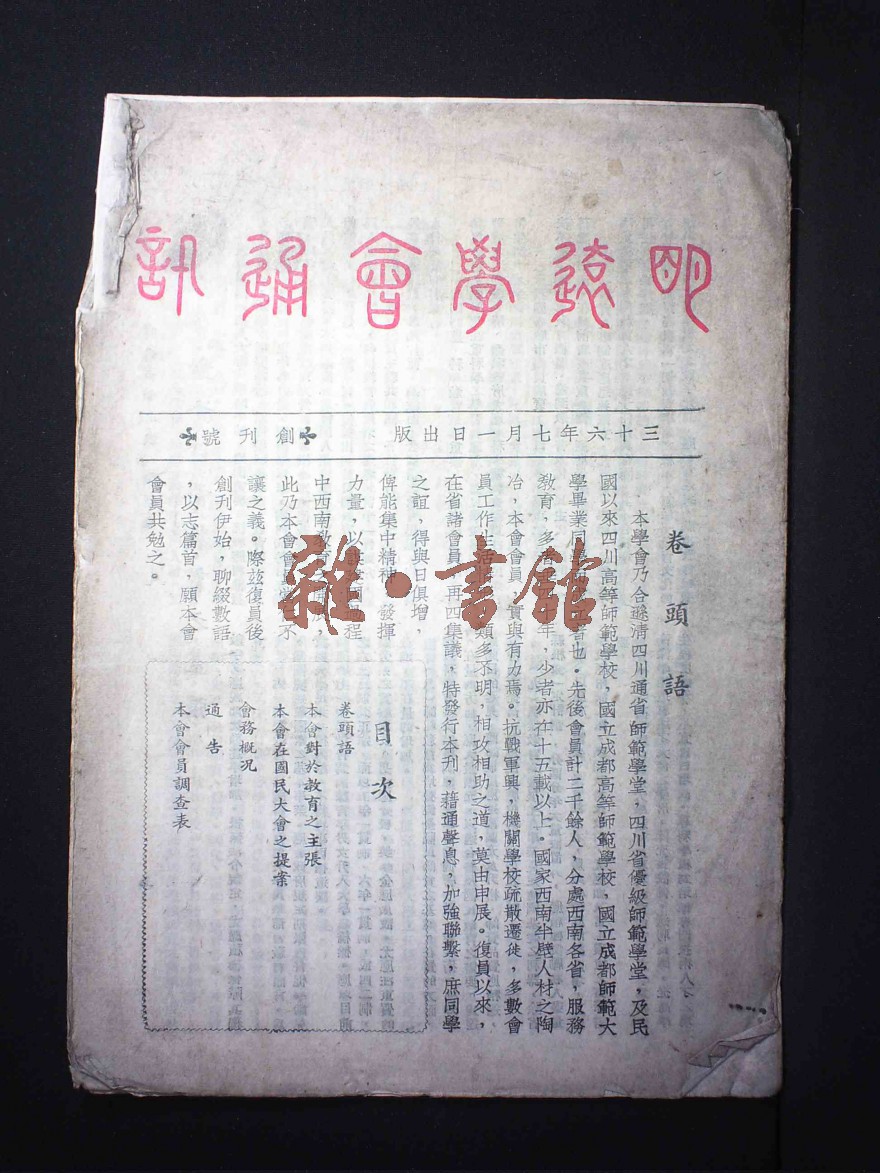 明遠學會通訊
三十六年七月一日出版
創刊號
卷頭語
本學會乃合遜清四川通省師範學堂,四川省優級師範學堂,及民
國以來四川高等師範學校,國立成都高等師範學校,國立成都師範大
學畢業同學
者也。先後會員計二千餘人,分處西南各省,服務
教育,多
年,少者亦在十五載以上。國家西南半壁人材之陶
冶,本會會員,實與有力焉。抗戰軍興,機關學校疏散遷徙,多數會
員工作生活
類多不明,相攻相助之道,莫由申展。復員以來,
在省諸會員,再四集議,特發行本刊,藉通聲息,加強聯繫,庶同學
之誼,得與日俱增,
俾能集中精神,發揮
力量,以
程
中西南教育之
,
此乃本會會
不
讓之義。際茲復員後
創刊伊始,聊綴數語
,以志篇首,願本會
會員共勉之。
目次
卷頭語
本會對於教育之主張
本會在國民大會之提案
會務概況
通告
本會會員調查表
雜·書館